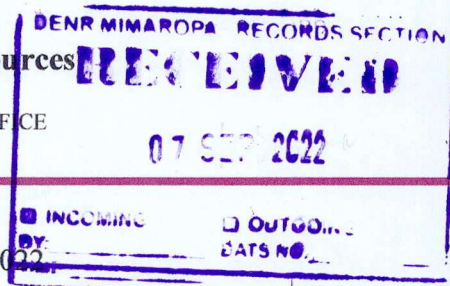 DENR MIMAROPA RECORDS SECTION
urces
RECEIVED
FICE
07 SEP 2022
INCOMING OUTGOING
BY: DATS NO.
022